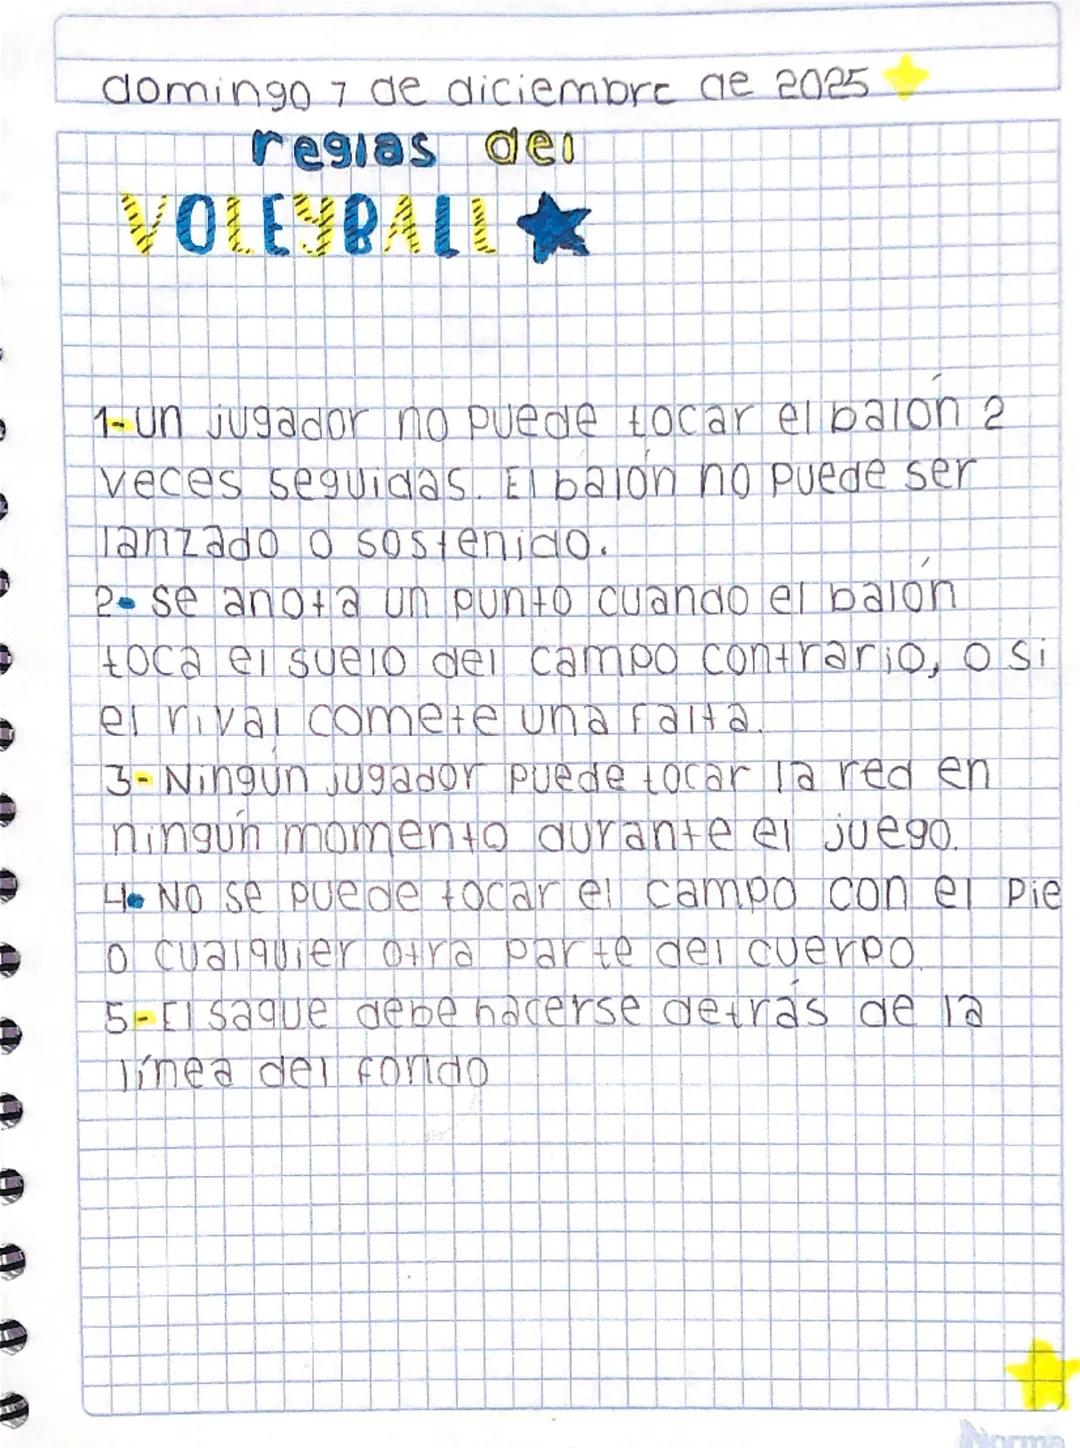 domingo 7 de diciembre de 2025
reglas del
VOLEYBALL
1-un jugador no puede tocar el balón 2
veces seguidas. El balón no puede ser
lanzado o sostenido.
2- se anota un punto cuando el balón
toca el suelo del campo contrario, o si
el rival comete una falta.
3- Ningún jugador puede tocar la red en
ningún momento durante el juego.
4- No se puede tocar el campo con el pie
o cualquier otra parte del cuerpo.
5- El saque debe hacerse detrás de la
línea del fondo
Norma